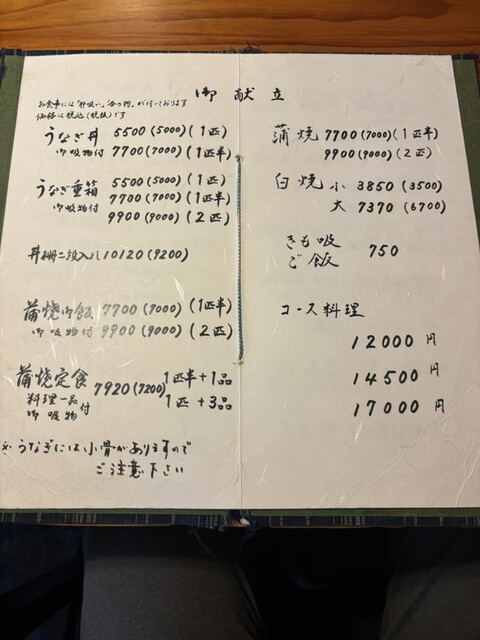 御献立
お食事には「肝吸い」「香の物」が付いております
価格は税込(税抜)です
うなぎ丼 5500(5000)(1匹)
御吸物付 7700(7000)(1匹半)
うなぎ重箱 5500(5000)(1匹)
御吸物付 7700(7000)(1匹半)
9900(9000)(2匹)
丼冊二段入り 10120(9200)
蒲焼御飯 7700(7000)(1匹半)
御吸物付 9900(9000)(2匹)
蒲焼定食 7920(7200) 1匹半+1品
料理一品 御吸物付 1匹+3品
※うなぎには小骨がありますので
ご注意下さい
蒲焼 7700(7000)(1匹半)
9900(9000)(2匹)
白焼 小 3850(3500)
大 7370(6700)
きも吸 ご飯 750
コース料理
12000円
14500円
17000円